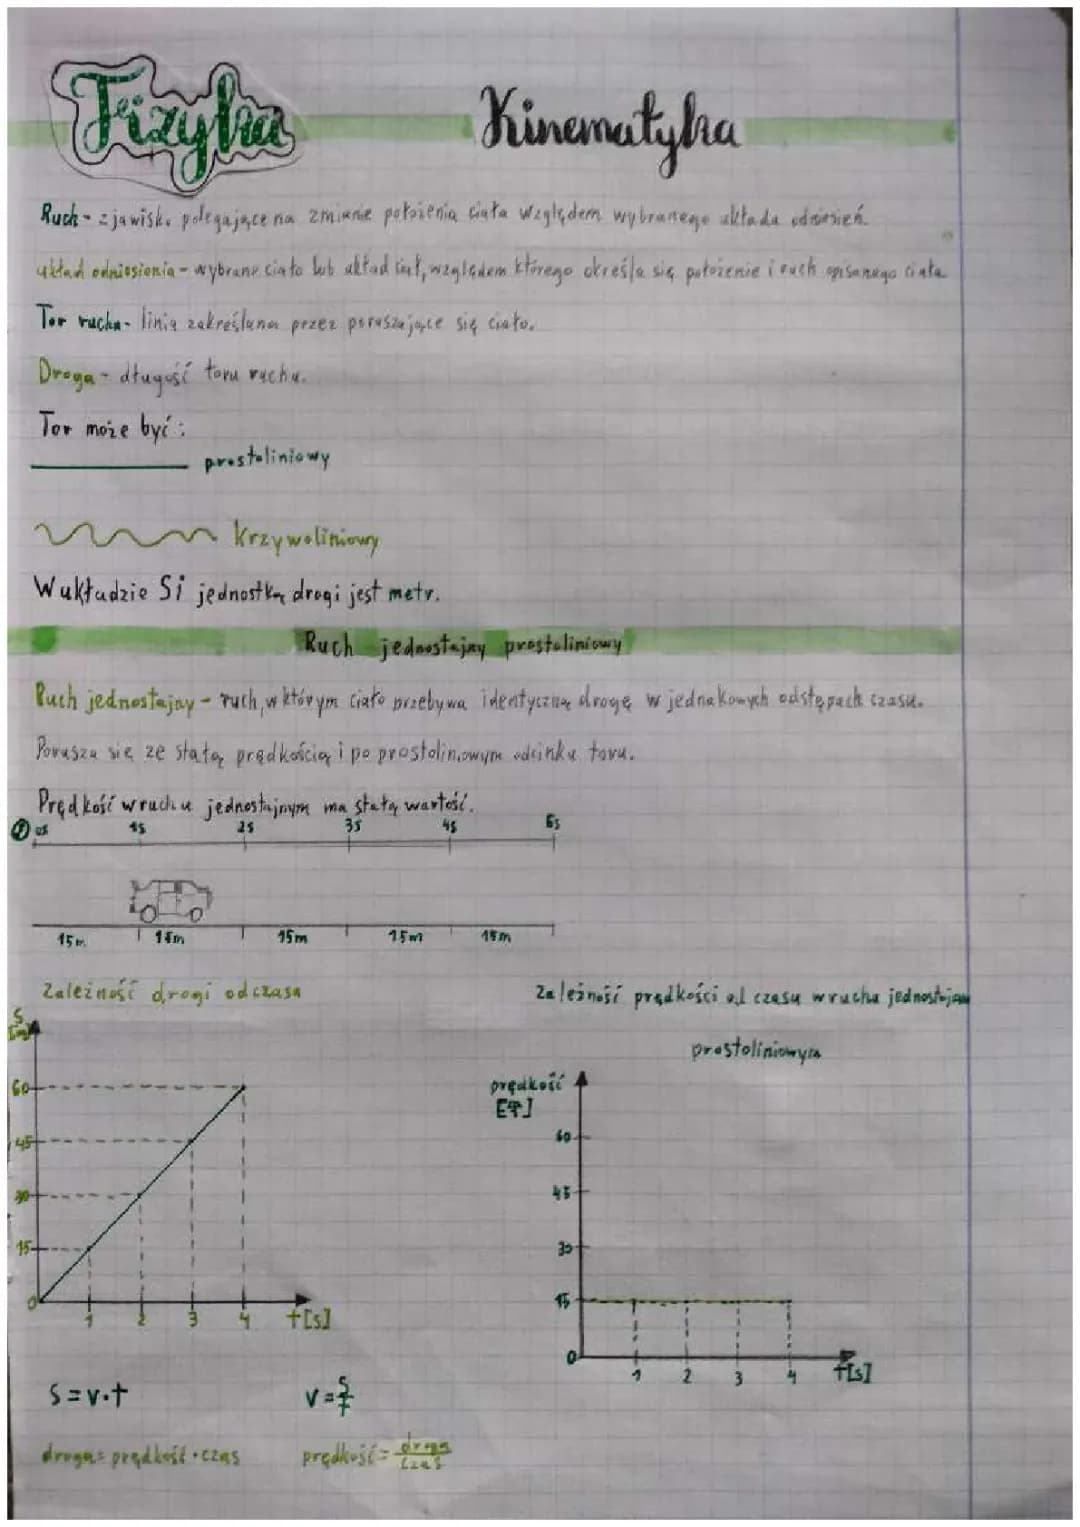 Fizyka
Kinematyka
Ruch - zjawisko polegające na zmianie położenia ciała względem wybranego układu odniesień.
układ odniesienia - wybrane ciało lub układ ciał, względem którego określa się położenie i ruch opisanego ciała
Tor ruchu - linia zakreślana przez poruszające się ciało.
Droga - długość toru ruchu.
Tor może być:
prostoliniowy
Krzywoliniowy
W układzie Si jednostką drogi jest metr.
Ruch jednostajny prostoliniowy
Ruch jednostajny - ruch, w którym ciało przebywa identyczną drogę w jednakowych odstępach czasu.
Porusza się ze stałą prędkością i po prostoliniowym odcinku toru.
Prędkość w ruchu jednostajnym ma stałą wartość.
0s 1s 2s 3s 4s 5s
15m 15m 15m 15m 15m
Zależność drogi od czasu
Zależność prędkości od czasu w ruchu jednostajnym
prostoliniowym
S [m]
60
45
30
15
0
1 2 3 4 t[s]
prędkość
[m/s]
60
45
30
15
0
1 2 3 4 t[s]
S = v·t
v = s/t
droga = prędkość · czas
prędkość = droga/czas